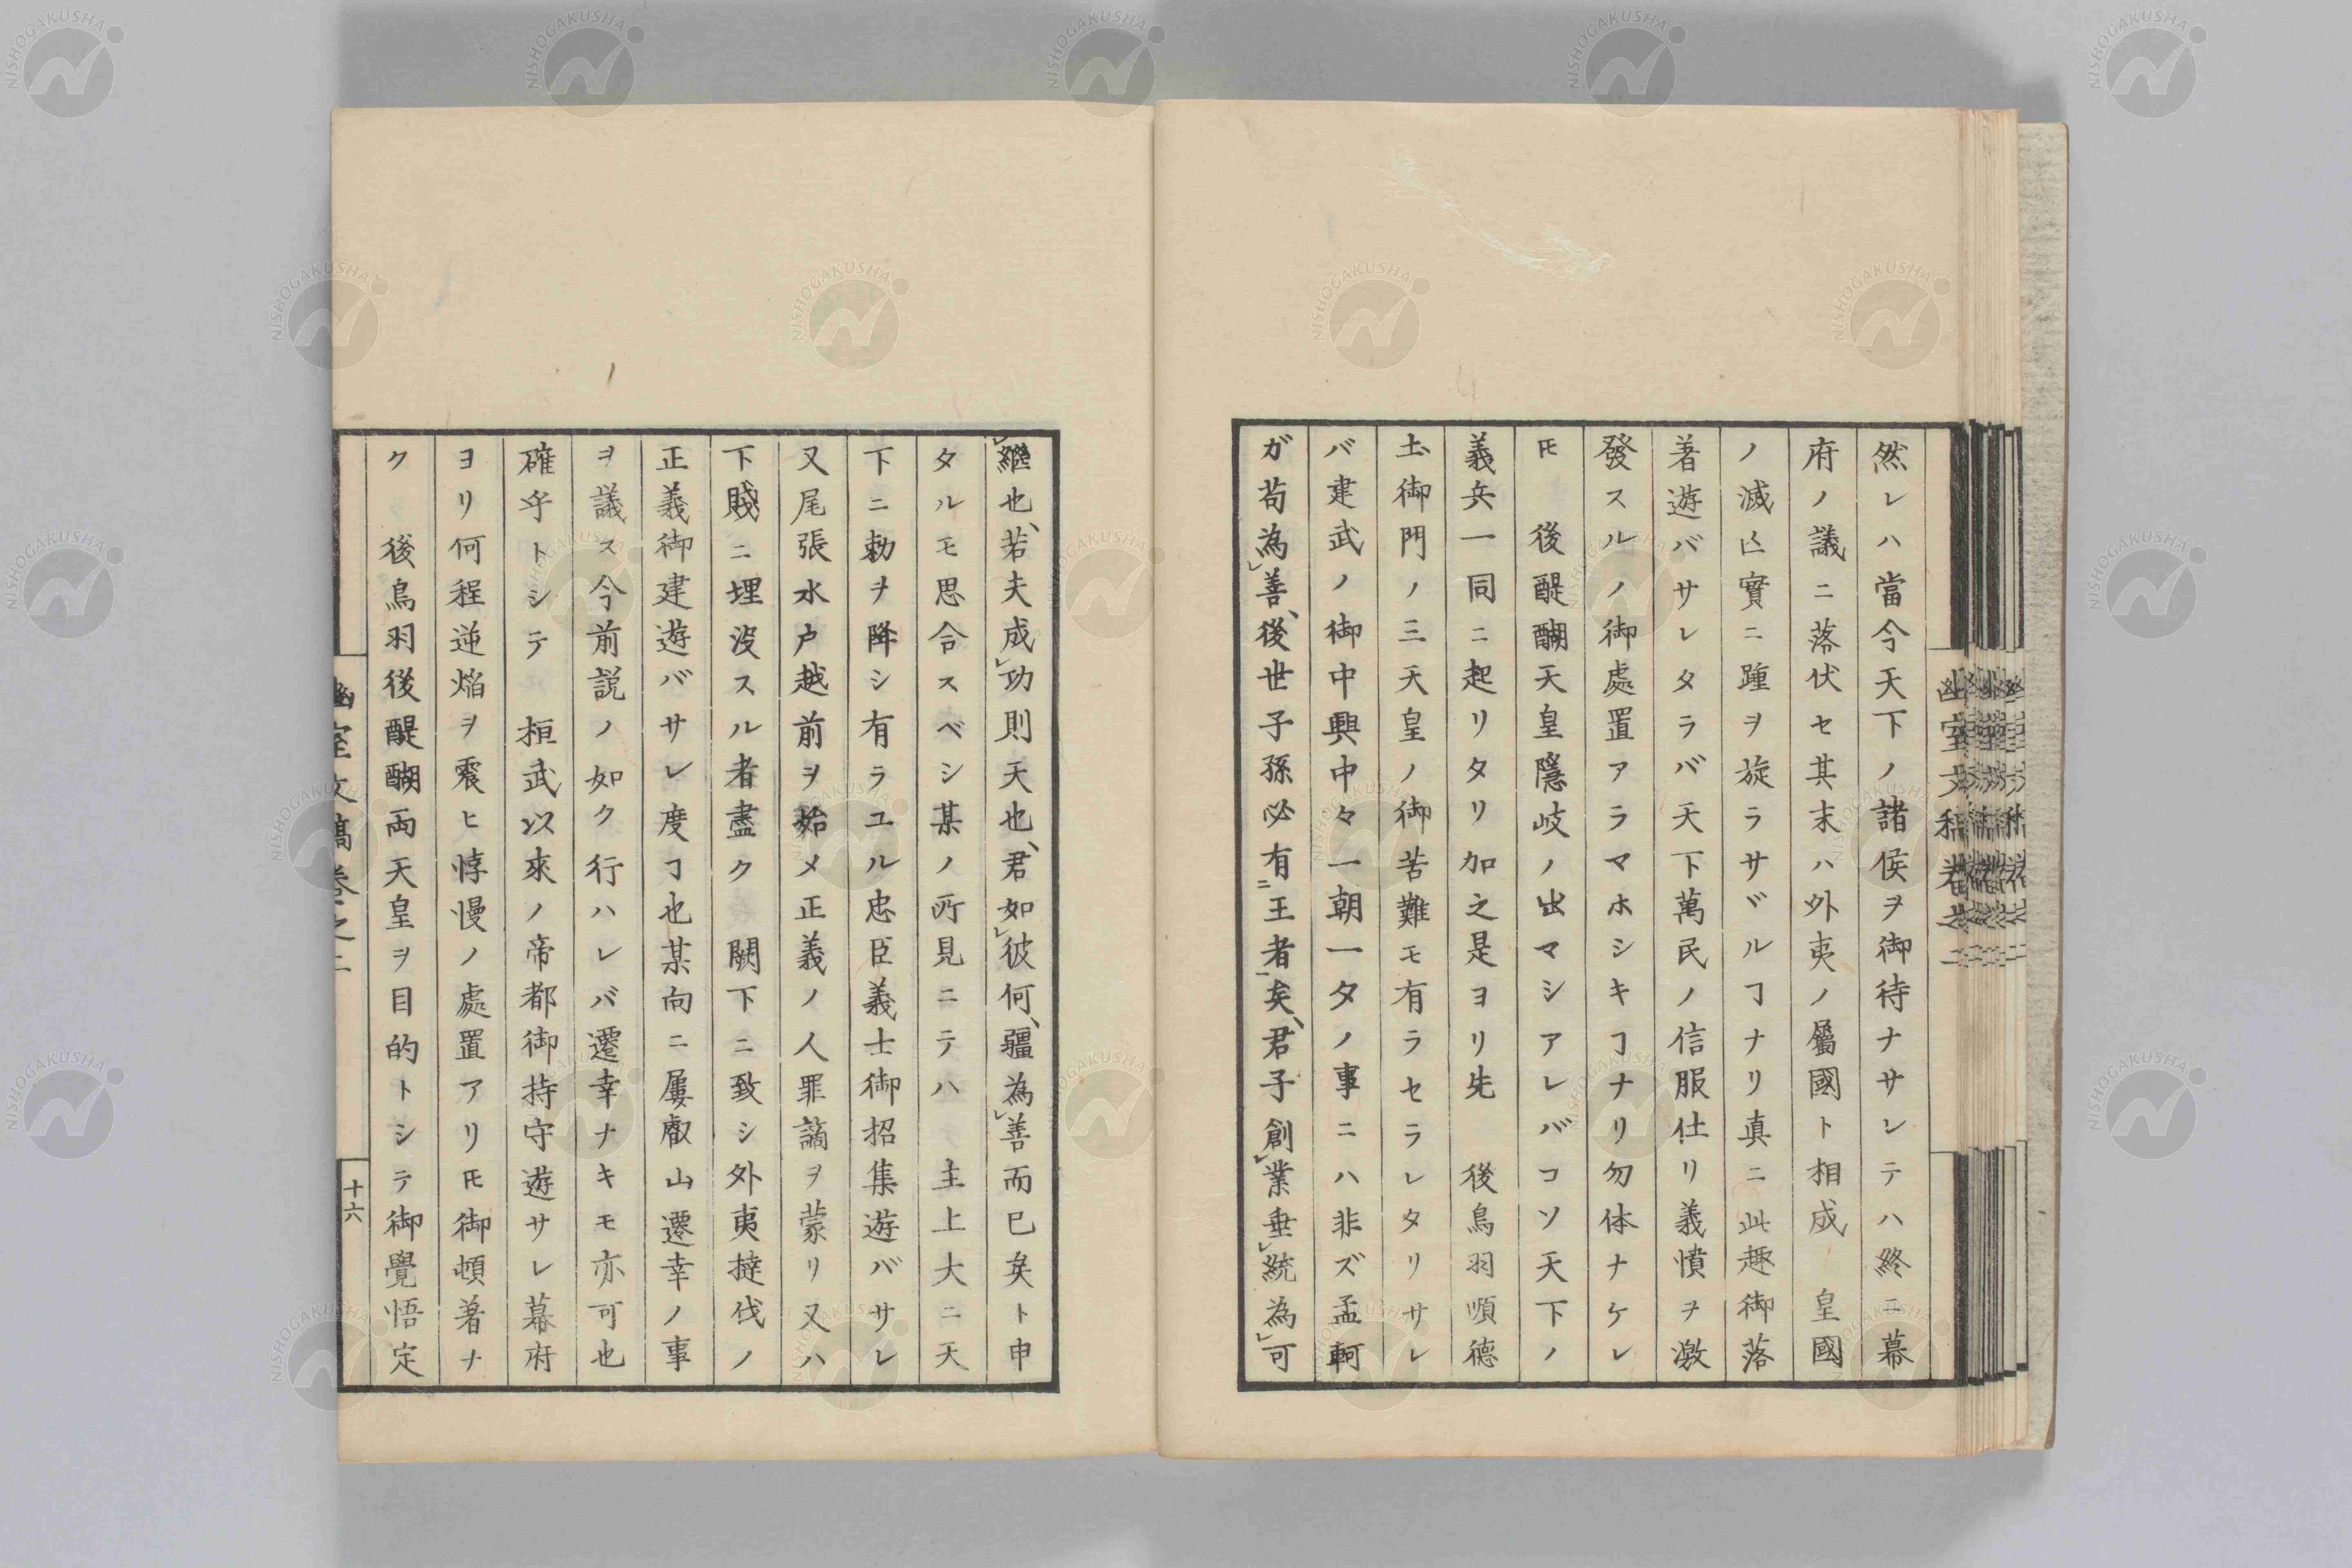 然レハ當今天下ノ諸侯ヲ御待ナサレテハ終ニ幕
府ノ議ニ落伏セ其末ハ外夷ノ屬國ト相成　皇國
ノ滅亡實ニ踵ヲ旋ラサヾルヿナリ真ニ此趣御落
著遊バサレタラバ天下萬民ノ信服仕リ義憤ヲ激
發スルノ御處置アラマホシキヿナリ勿体ナケレ
𪜈　後醍醐天皇隱岐ノ出マシアレバコソ天下ノ
義兵一同ニ起リタリ加之是ヨリ先　後鳥羽順德
土御門ノ三天皇ノ御苦難モ有ラセラレタリサレ
バ建武ノ御中興中々一朝一夕ノ事ニハ非ズ孟軻
ガ苟為㆑善、後世子孫必有㆓王者㆒矣、君子創㆑業垂㆑統為㆑可
㆑繼也、若夫成㆑功則天也、君如㆑彼何、疆為㆑善而已矣ト申
タルモ思合スベシ某ノ所見ニテハ　主上大ニ天
下ニ勅ヲ降シ有ラユル忠臣義士御招集遊バサレ
又尾張水戶越前ヲ始メ正義ノ人罪謫ヲ蒙リ又ハ
下賤ニ埋沒スル者盡ク　闕下ニ致シ外夷撻伐ノ
正義御建遊バサレ度ヿ也某向ニ屢叡山遷幸ノ事
ヲ議ス今前説ノ如ク行ハレバ遷幸ナキモ亦可也
確乎トシテ　桓武以來ノ帝都御持守遊サレ幕府
ヨリ何程逆焰ヲ震ヒ悖慢ノ處置アリ𪜈御頓著ナ
ク　後鳥羽後醍醐両天皇ヲ目的トシテ御覺悟定
幽室文稿卷之二
十六
幽室文稿卷之二
NISHOGAKUSHA